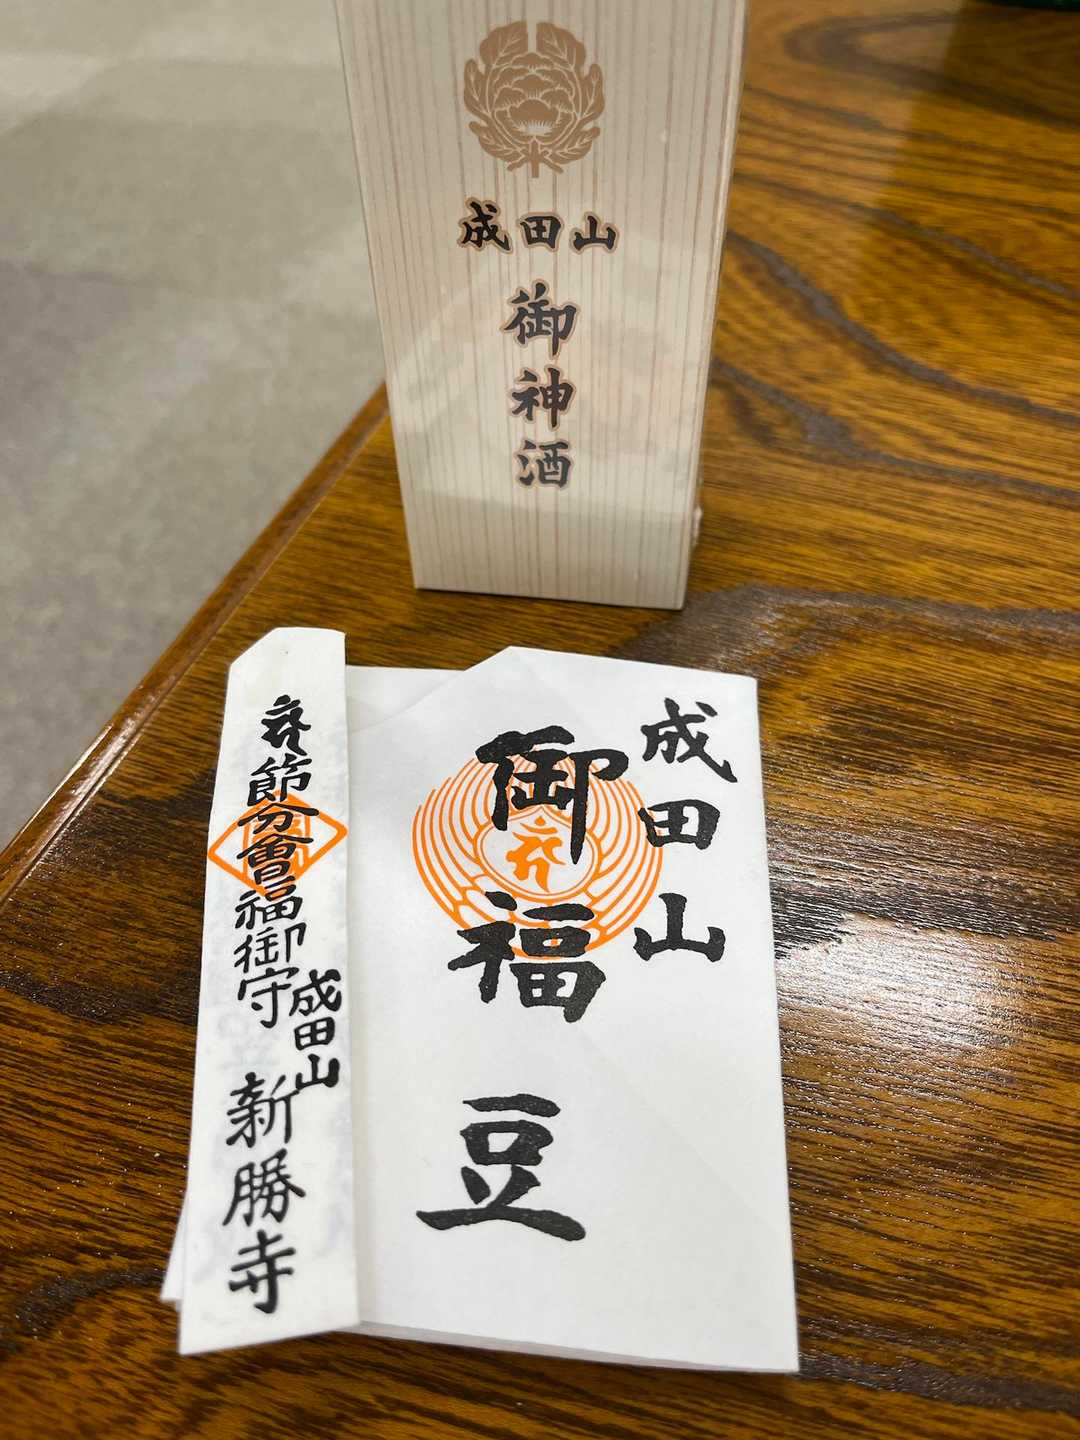 成田山
御神酒
成田山
御福豆
節分會福御守
成田山
新勝寺